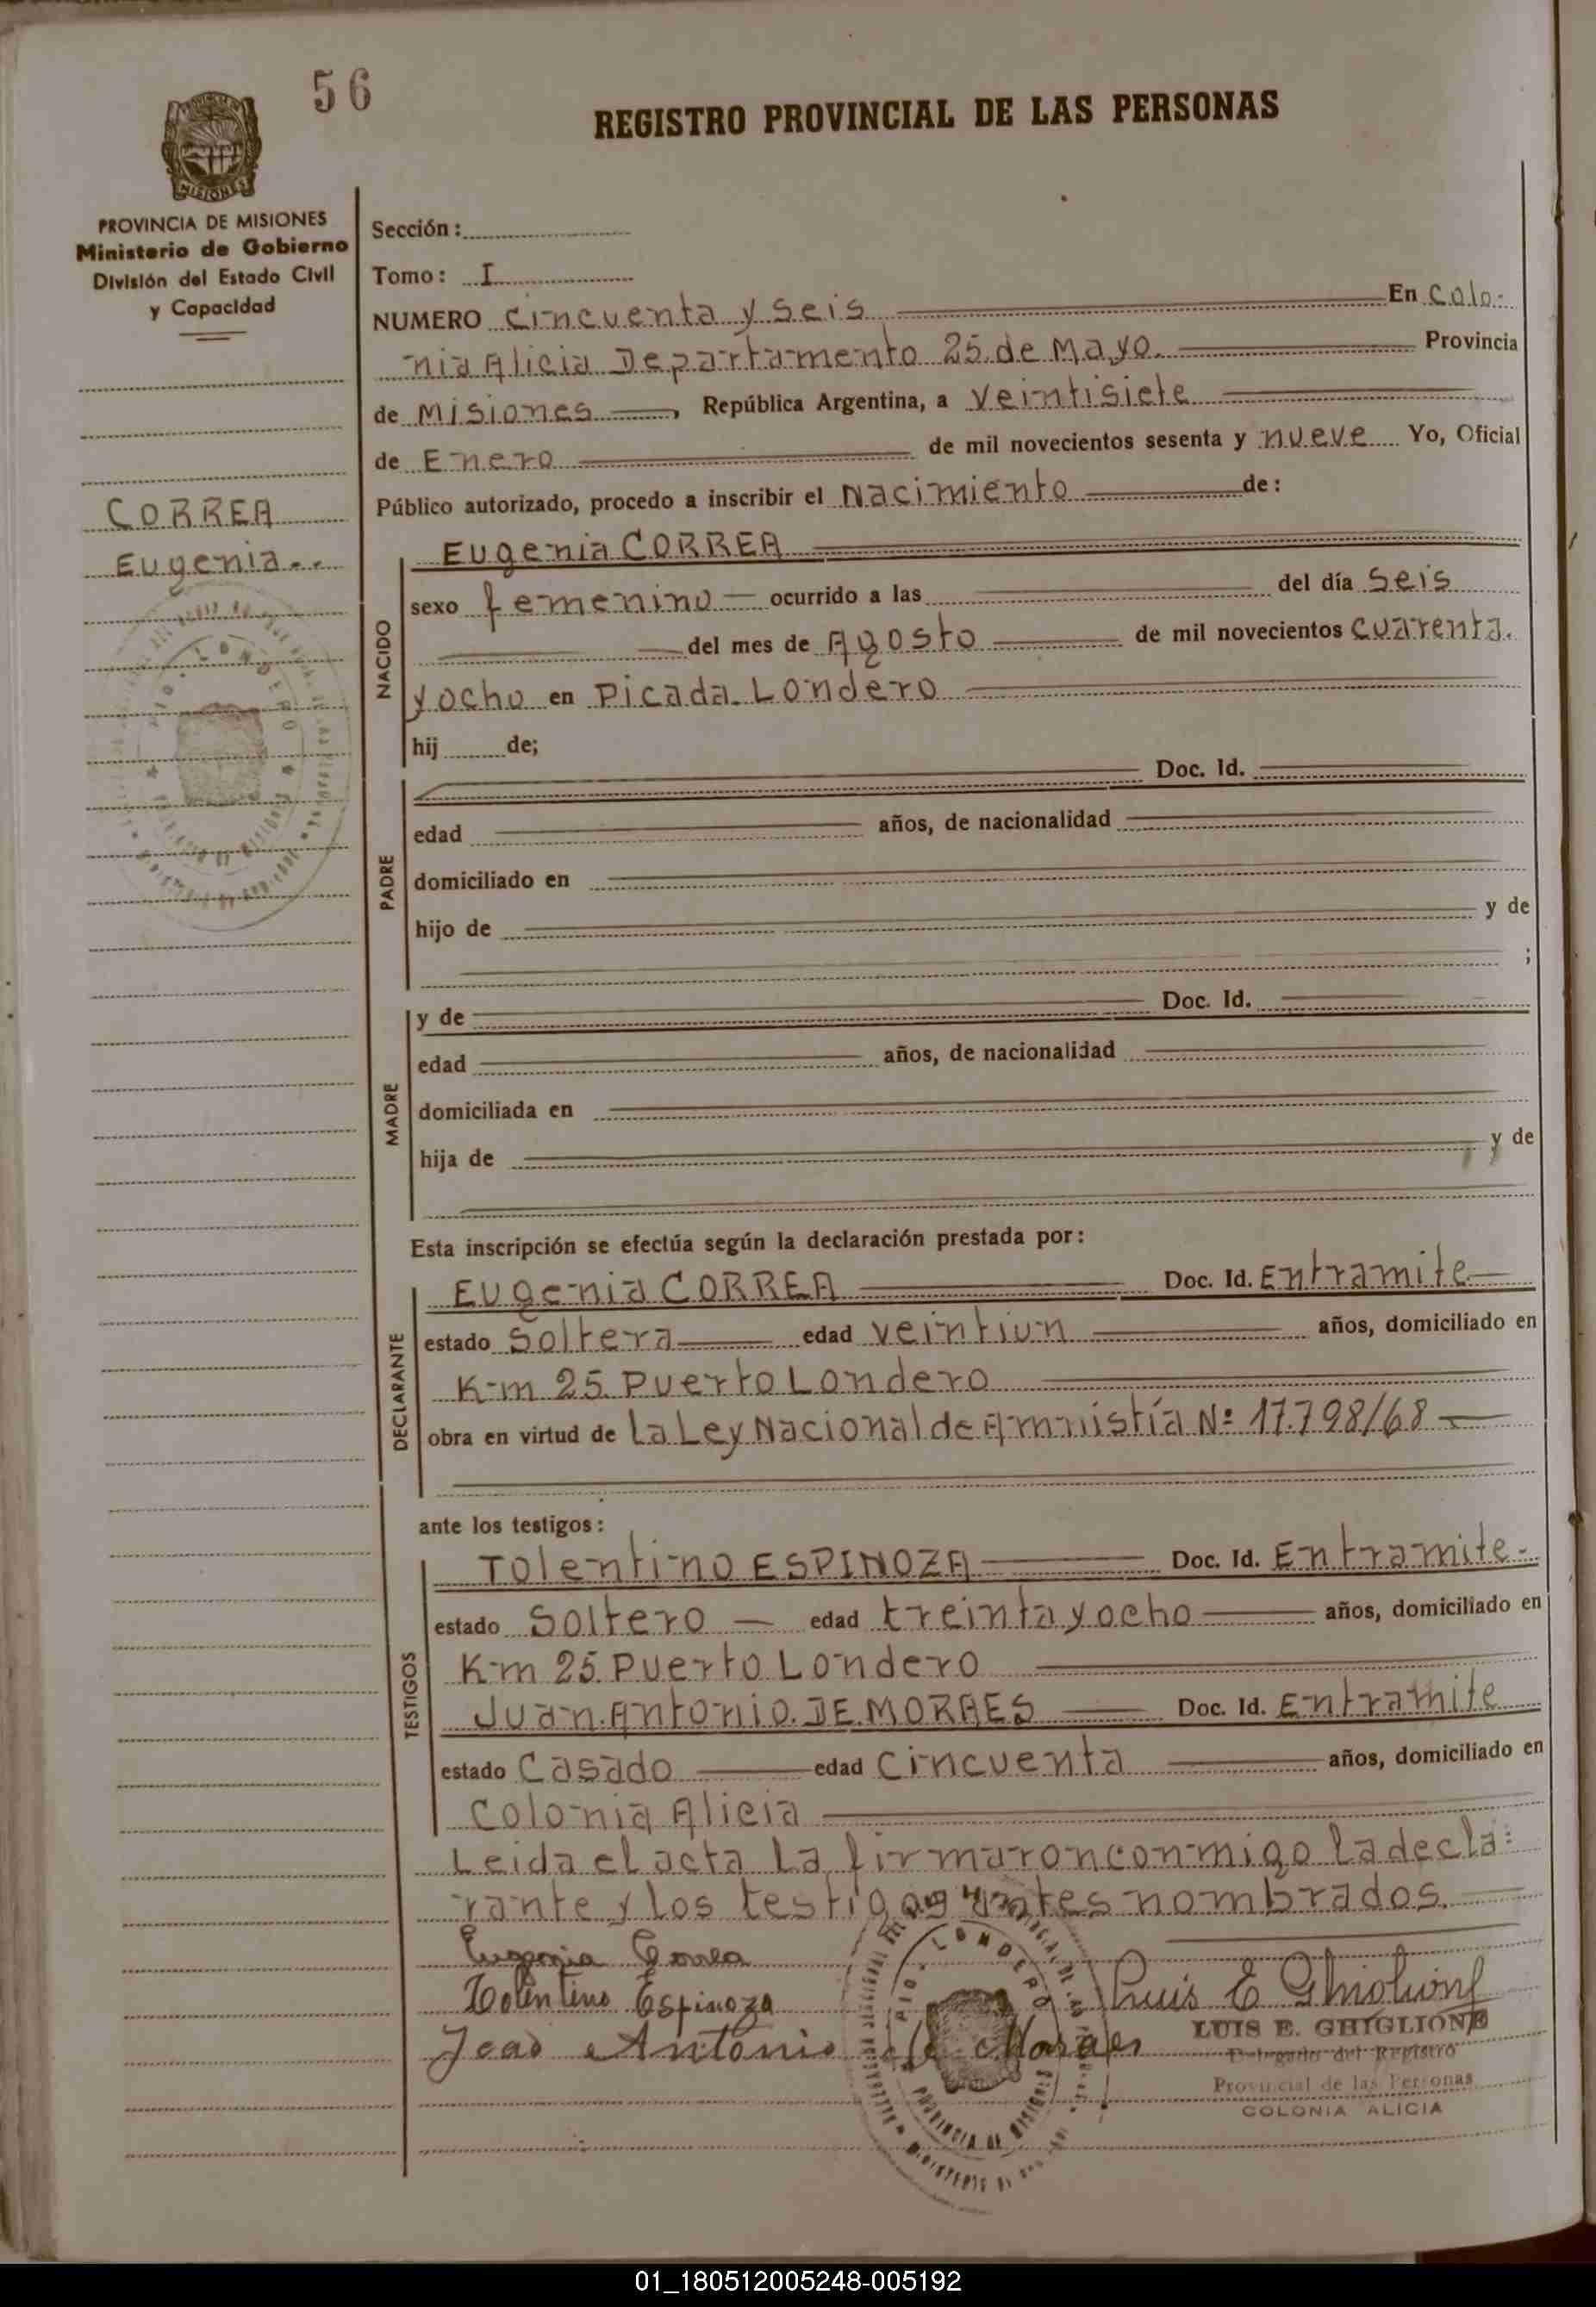 56
REGISTRO PROVINCIAL DE LAS PERSONAS
MISIONES
PROVINCIA DE MISIONES
Ministerio de Gobierno
División del Estado Civil
y Capacidad
CORREA
Eugenia..
Sección:
Tomo: I
NUMERO cincuenta y seis En Colo-
nia Alicia Departamento 25 de Mayo. Provincia
de Misiones, República Argentina, a veintisiete
de Enero de mil novecientos sesenta y nueve Yo, Oficial
Público autorizado, procedo a inscribir el Nacimiento de:
NACIDO
Eugenia CORREA
sexo femenino ocurrido a las del día seis
del mes de Agosto de mil novecientos cuarenta.
y ocho en Picada Londero
hij de;
PADRE
Doc. Id.
edad años, de nacionalidad
domiciliado en
hijo de y de
;
MADRE
y de Doc. Id.
edad años, de nacionalidad
domiciliada en
hija de y de
Esta inscripción se efectúa según la declaración prestada por:
DECLARANTE
Eugenia CORREA Doc. Id. Entramite
estado Soltera edad veintiun años, domiciliado en
Km 25 Puerto Londero
obra en virtud de la Ley Nacional de Amnistía Nº 17.798/68
ante los testigos:
TESTIGOS
Tolentino ESPINOZA Doc. Id. Entramite-
estado Soltero edad treinta y ocho años, domiciliado en
Km 25 Puerto Londero
Juan Antonio DE MORAES Doc. Id. Entramite
estado Casado edad cincuenta años, domiciliado en
Colonia Alicia
Leida el acta la firmaron conmigo la decla-
rante y los testigos antes nombrados.
Eugenia Correa
Tolentino Espinoza
Joao Antonio de Moraes
PIO LONDERO
PROVINCIA DE MISIONES
LUIS E. GHIGLIONE
Delegado del Registro
Provincial de las Personas
COLONIA ALICIA
01_180512005248-005192